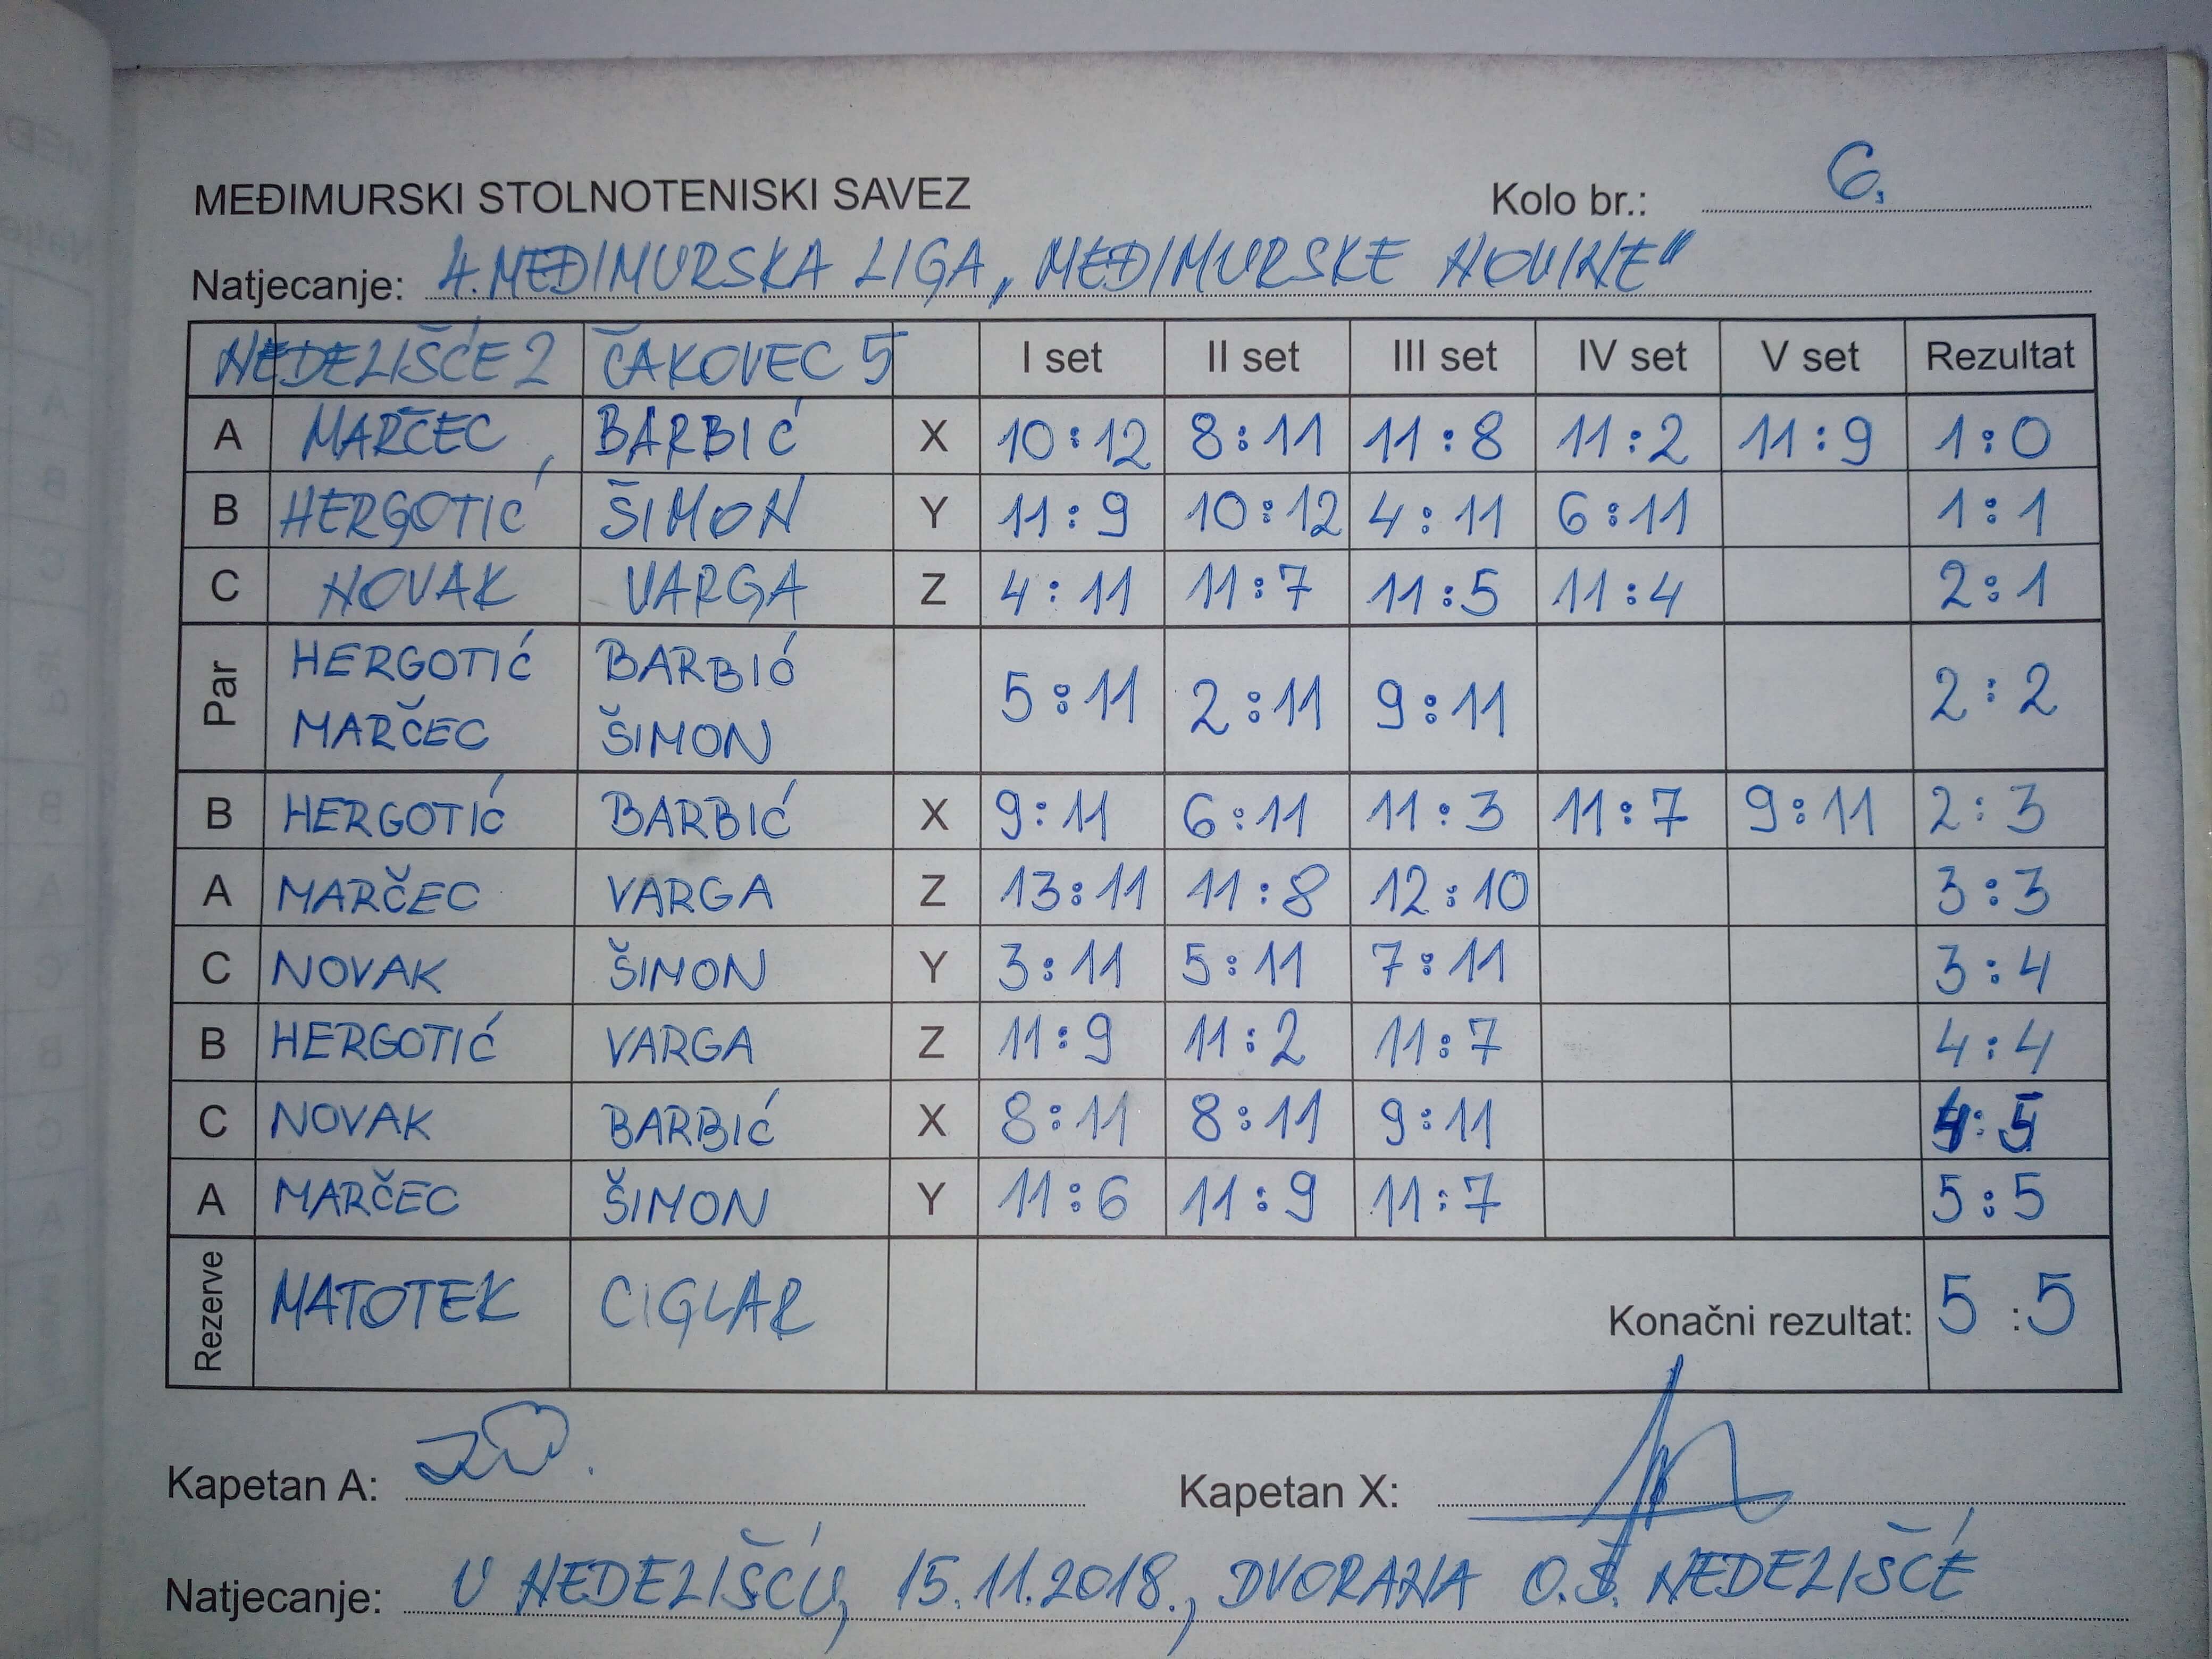 MEĐIMURSKI STOLNOTENISKI SAVEZ Kolo br.: 6.
Natjecanje: 4. MEĐIMURSKA LIGA „MEĐIMURSKE NOVINE"
NEDELIŠĆE 2 ČAKOVEC 5 I set II set III set IV set V set Rezultat
A MARČEC BARBIĆ X 10:12 8:11 11:8 11:2 11:9 1:0
B HERGOTIĆ ŠIMON Y 11:9 10:12 4:11 6:11 1:1
C NOVAK VARGA Z 4:11 11:7 11:5 11:4 2:1
Par HERGOTIĆ MARČEC BARBIĆ ŠIMON 5:11 2:11 9:11 2:2
B HERGOTIĆ BARBIĆ X 9:11 6:11 11:3 11:7 9:11 2:3
A MARČEC VARGA Z 13:11 11:8 12:10 3:3
C NOVAK ŠIMON Y 3:11 5:11 7:11 3:4
B HERGOTIĆ VARGA Z 11:9 11:2 11:7 4:4
C NOVAK BARBIĆ X 8:11 8:11 9:11 4:5
A MARČEC ŠIMON Y 11:6 11:9 11:7 5:5
Rezerve MATOTEK CIGLAR Konačni rezultat: 5:5
Kapetan A: Kapetan X:
Natjecanje: U NEDELIŠĆU, 15.11.2018., DVORANA O.Š. NEDELIŠĆE